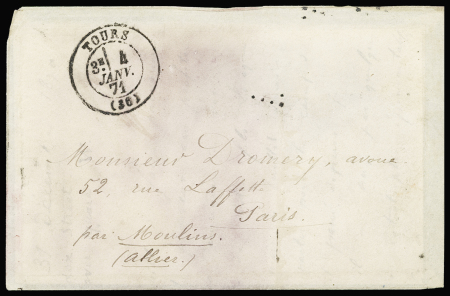 TOURS
3E 4
JANV.
71
(36)
Monsieur Dromery, avoué
52, rue Laffitt
Paris.
par Moulins.
(Allier.)